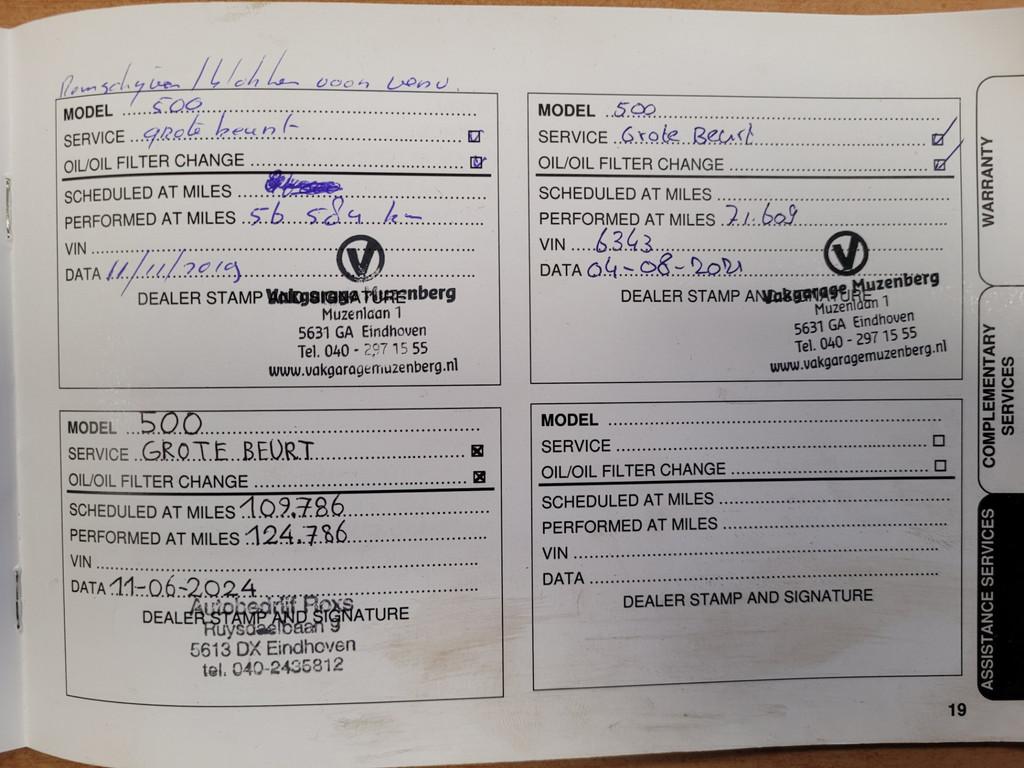 Remschijven / blokken voor verv.
MODEL 500
SERVICE grote beurt
OIL/OIL FILTER CHANGE
SCHEDULED AT MILES
PERFORMED AT MILES 56.584 km
VIN
DATA 11/11/2019
DEALER STAMP AND SIGNATURE
Vakgarage Muzenberg
Muzenlaan 1
5631 GA Eindhoven
Tel. 040 - 297 15 55
www.vakgaragemuzenberg.nl
MODEL 500
SERVICE Grote Beurt
OIL/OIL FILTER CHANGE
SCHEDULED AT MILES
PERFORMED AT MILES 71.609
VIN 6343
DATA 04-08-2021
DEALER STAMP AND SIGNATURE
Vakgarage Muzenberg
Muzenlaan 1
5631 GA Eindhoven
Tel. 040 - 297 15 55
www.vakgaragemuzenberg.nl
MODEL 500
SERVICE GROTE BEURT
OIL/OIL FILTER CHANGE
SCHEDULED AT MILES 109.786
PERFORMED AT MILES 124.786
VIN
DATA 11-06-2024
Autobedrijf Roxs
DEALER STAMP AND SIGNATURE
Ruysdaelbaan 9
5613 DX Eindhoven
tel. 040-2435812
MODEL
SERVICE
OIL/OIL FILTER CHANGE
SCHEDULED AT MILES
PERFORMED AT MILES
VIN
DATA
DEALER STAMP AND SIGNATURE
WARRANTY
COMPLEMENTARY
SERVICES
ASSISTANCE SERVICES
19